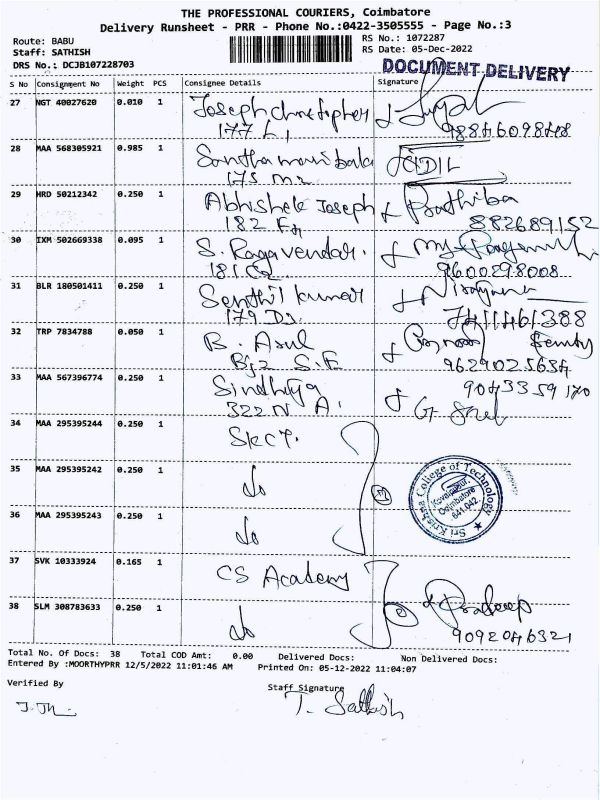 THE PROFESSIONAL COURIERS, Coimbatore
Delivery Runsheet - PRR - Phone No.:0422-3505555 - Page No.:3
Route: BABU
RS No.: 1072287
Staff: SATHISH
RS Date: 05-Dec-2022
DRS No.: DCJB107228703
DOCUMENT DELIVERY
S No Consignment No Weight PCS Consignee Details Signature
27 NGT 40027620 0.010 1 Joseph Christopher
177 L,
28 MAA 568305921 0.985 1 Santha mani bala
175 m2
29 HRD 50212342 0.250 1 Abhishek Joseph Prathiba
182 882689152
30 IXM 502669338 0.095 1 S. Ragavendar.
181 C2 9600298008
31 BLR 180501411 0.250 1 Senthil kumar
179 D2 7411461388
32 TRP 7834788 0.050 1 B. Arul
S.E 9629025634
33 MAA 567396774 0.250 1 Sindhiya 9043359170
322 N A.
34 MAA 295395244 0.250 1 SKCT.
35 MAA 295395242 0.250 1 do
36 MAA 295395243 0.250 1 do
Sri Krishna College of Technology
Kovaipudur,
Coimbatore
641 042.
37 SVK 10333924 0.165 1 CS Academy
38 SLM 308783633 0.250 1 do Pradeep
9092046321
Total No. Of Docs: 38 Total COD Amt: 0.00 Delivered Docs: Non Delivered Docs:
Entered By :MOORTHYPRR 12/5/2022 11:01:46 AM Printed On: 05-12-2022 11:04:07
Verified By
Staff Signature
T. Sathish